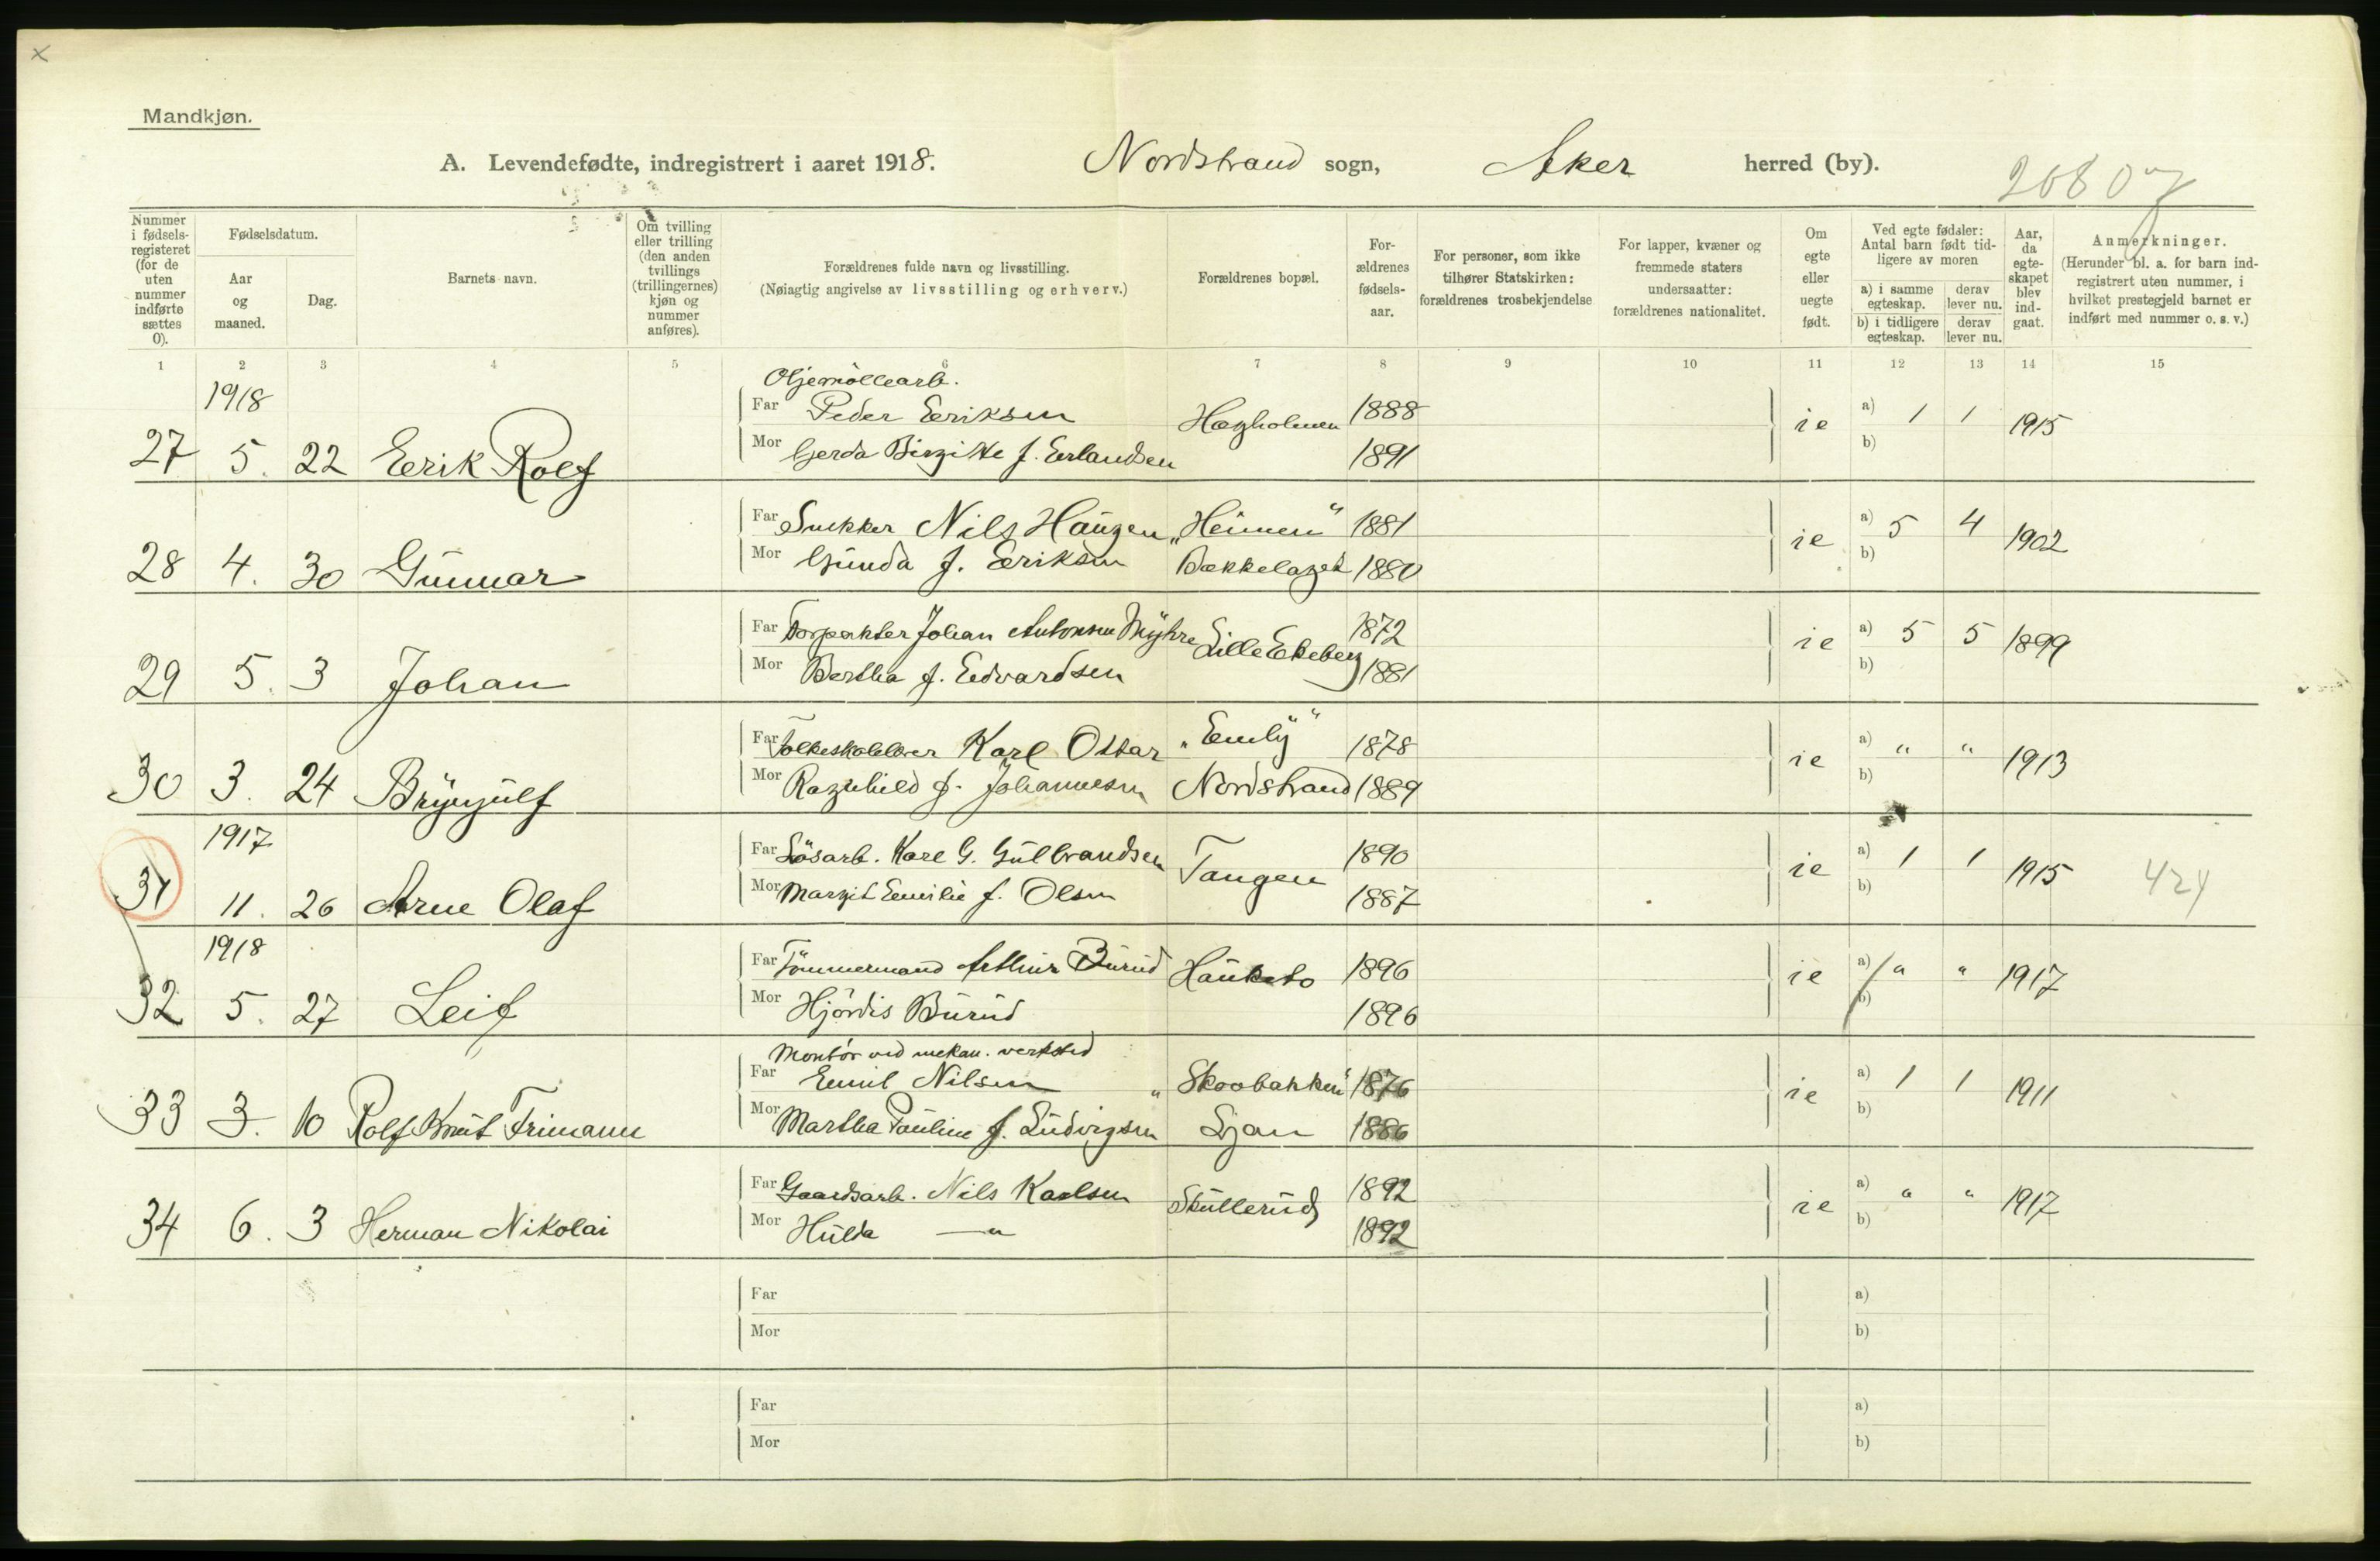 Mandkjøn.
A. Levendefødte, indregistrert i aaret 1918. Nordstrand sogn, Aker herred (by).
Nummer i fødselsregisteret (for de uten nummer indførte sættes 0).
Fødselsdatum.
Aar og maaned.
Dag.
Barnets navn.
Om tvilling eller trilling (den anden tvillings (trillingernes) kjøn og nummer anføres).
Forældrenes fulde navn og livsstilling.
(Nøiagtig angivelse av livsstilling og erhverv.)
Forældrenes bopæl.
For-ældrenes fødsels-aar.
For personer, som ikke tilhører Statskirken: forældrenes trosbekjendelse
For lapper, kvæner og fremmede staters undersaatter: forældrenes nationalitet.
Om egte eller uegte født.
Ved egte fødsler: Antal barn født tid-ligere av moren
a) i samme egteskap. derav lever nu.
b) i tidligere egteskap. derav lever nu.
Aar, da egte-skapet blev ind-gaat.
Anmerkninger.
(Herunder bl. a. for barn ind-registrert uten nummer, i hvilket prestegjeld barnet er indført med nummer o. s. v.)
1 2 3 4 5 6 7 8 9 10 11 12 13 14 15
1918 Oljemöllearb.
27 5. 22 Erik Rolf Far Peder Eriksen Hægholmen 1888 ie a) 1 1 1915
Mor Gerda Birgitte f. Erlandsen 1891 b)
28 4. 30 Gunnar Far Snekker Nils Haugen „Heimen“ 1881 ie a) 5 4 1902
Mor Gunda f. Eriksen Bækkelaget 1880 b)
29 5. 3 Johan Far Forpakter Johan Antonsen Myhre Lille Ekeberg 1872 ie a) 5 5 1899
Mor Bertha f. Edvardsen 1881 b)
30 3. 24 Brynjulf Far Folkeskolelærer Karl Ottar „Emly“ 1878 ie a) " " 1913
Mor Ragnhild f. Johannesen Nordstrand 1889 b)
1917
31 11. 26 Arne Olaf Far Lösarb. Karl G. Gulbrandsen Tangen 1890 ie a) 1 1 1915 424
Mor Margit Emilie f. Olsen 1887 b)
1918
32 5. 27 Leif Far Tömmermand Arthur Burud Hauketo 1896 ie a) " " 1917
Mor Hjördis Burud 1896 b)
Montör ved mekan. verksted
33 3. 10 Rolf Knut Frimann Far Emil Nilsen „Skoobakken“ 1876 ie a) 1 1 1911
Mor Martha Pauline f. Ludvigsen Ljan 1886 b)
34 6. 3 Herman Nikolai Far Gaardsarb. Nils Karlsen Skullerud 1892 ie a) " " 1917
Mor Hulda —"— 1892 b)
Far a)
Mor b)
Far a)
Mor b)